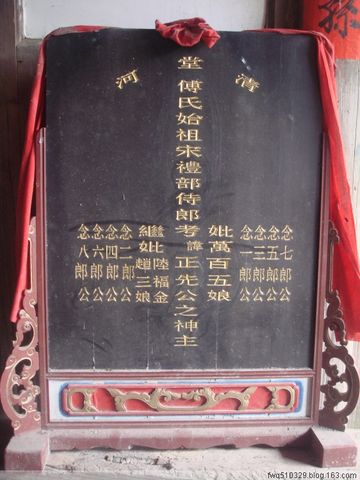 清河
堂傅氏始祖宋禮部侍郎考諱正先公之神主
妣萬百五娘
繼妣陸福金
繼妣趙三娘
念一郎公
念三郎公
念五郎公
念七郎公
念二郎公
念四郎公
念六郎公
念八郎公
fwq510329.blog.163.com